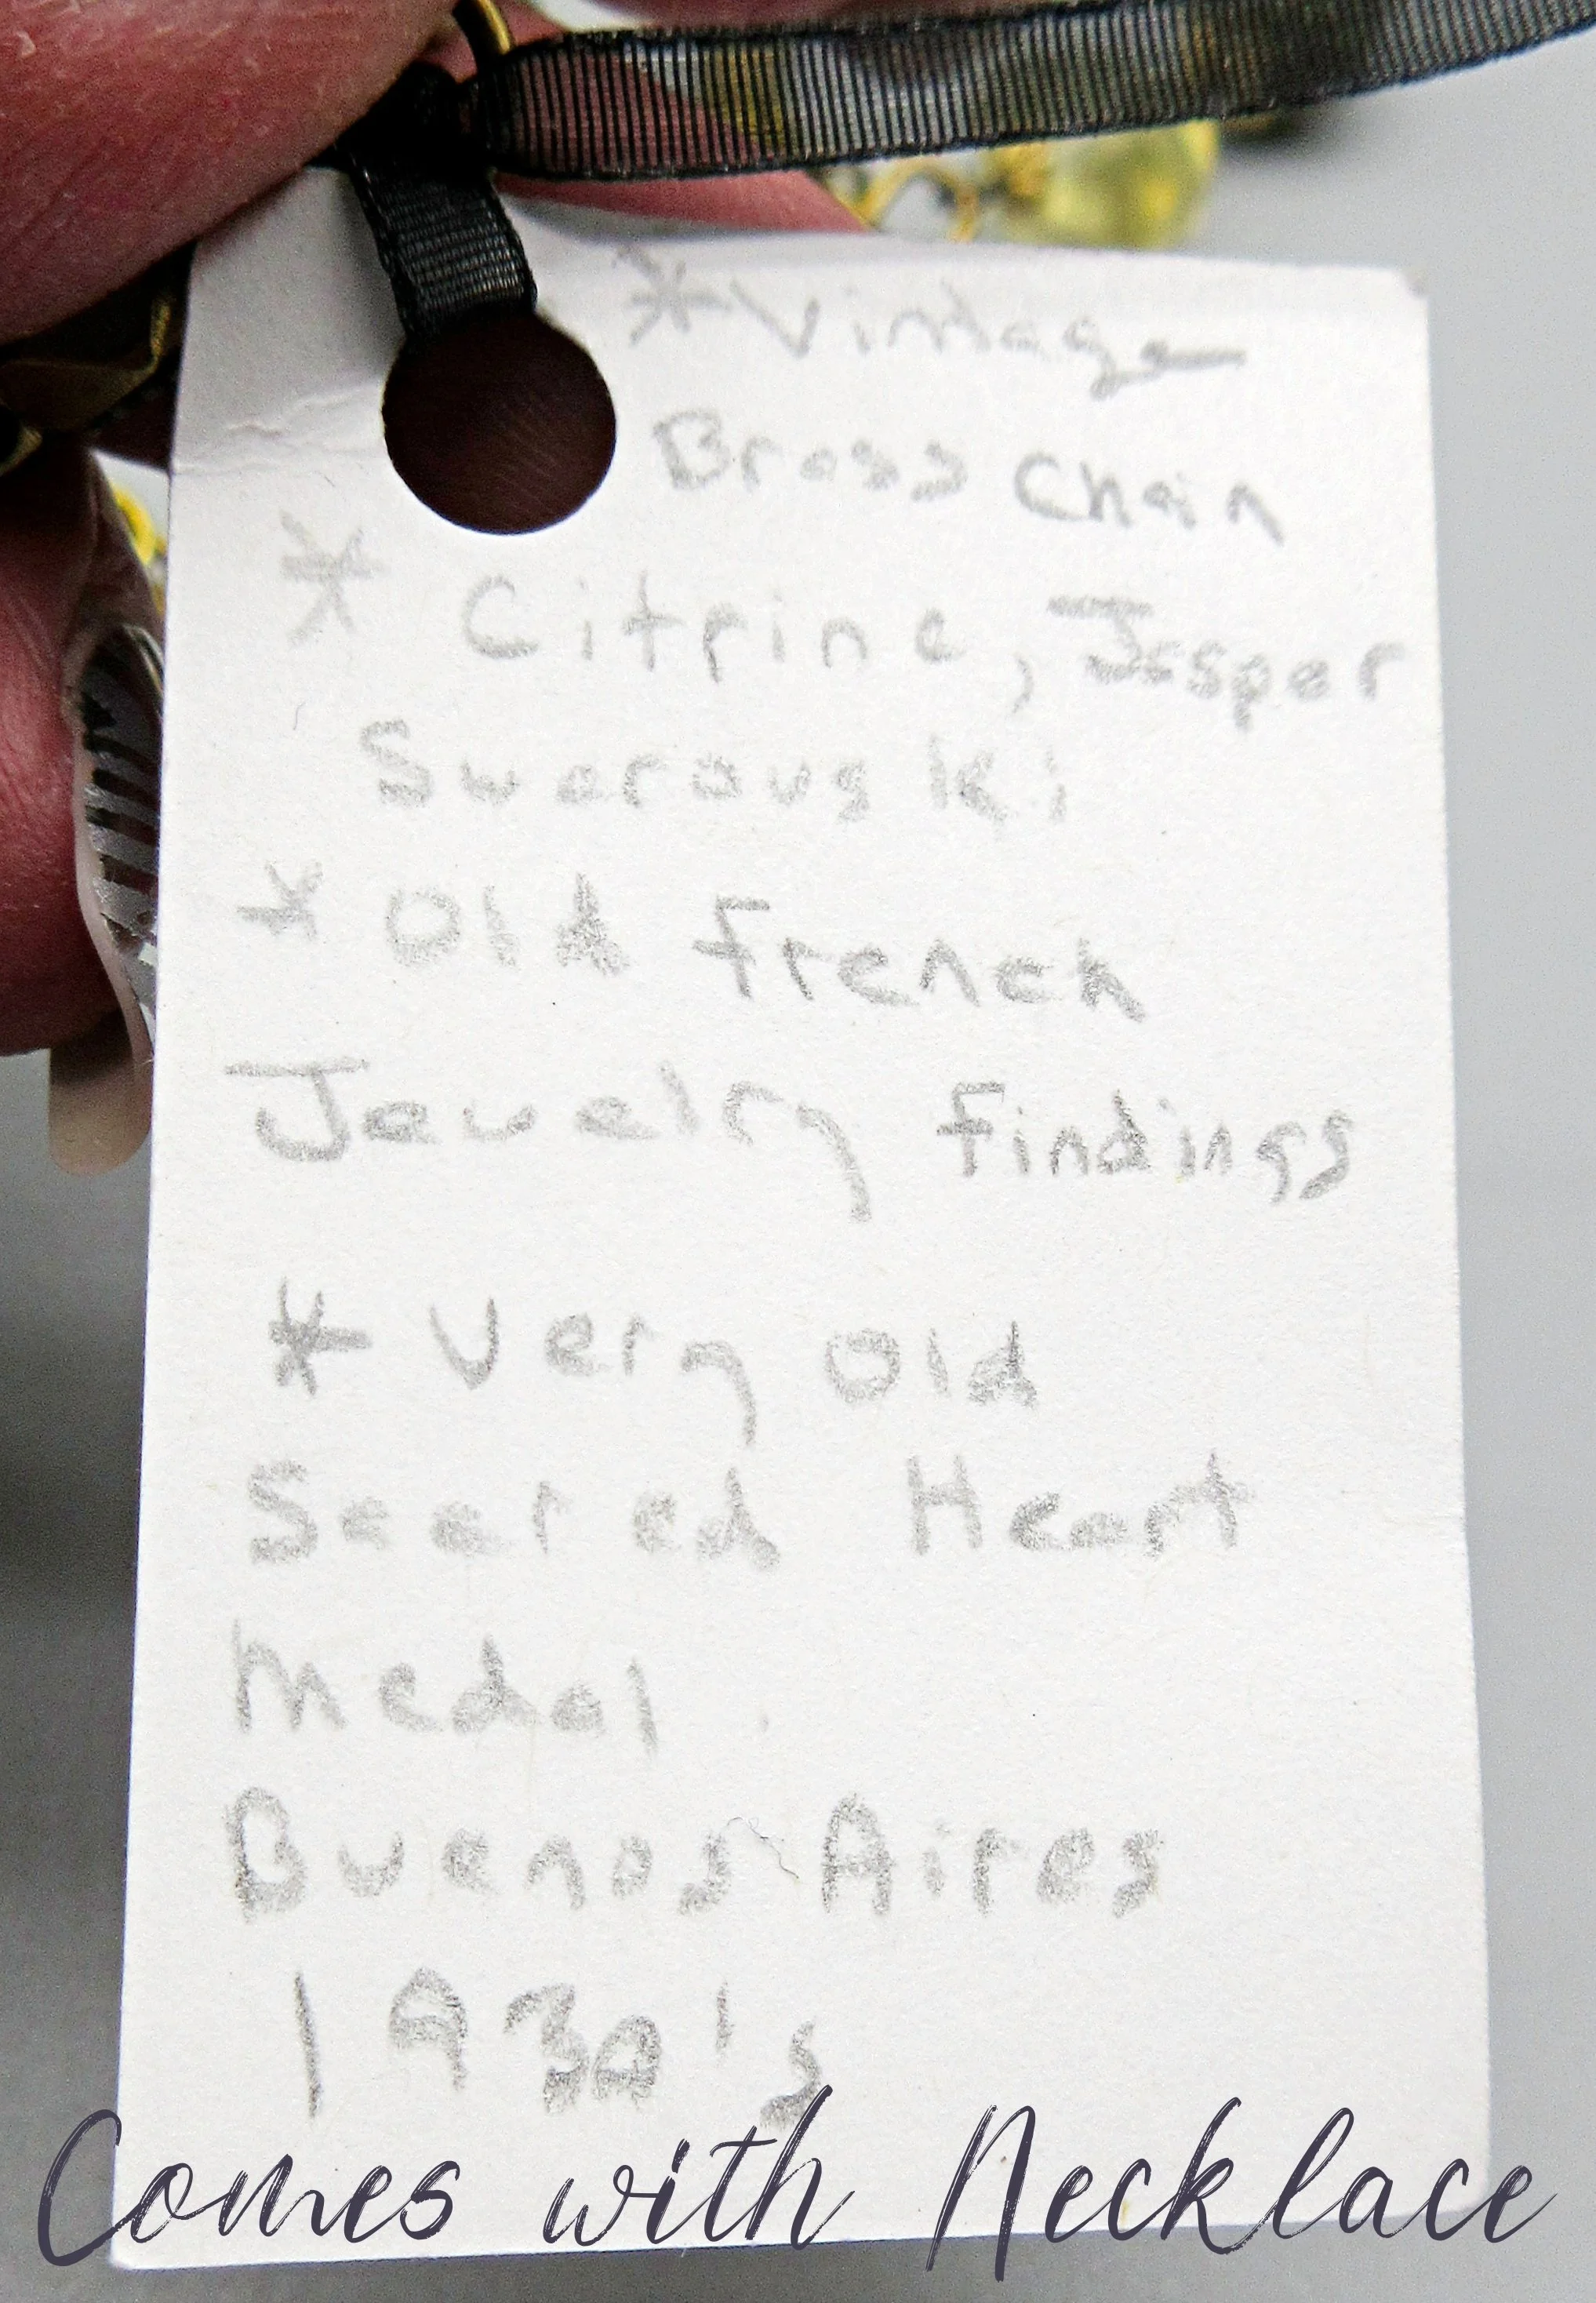 *Vintage
Brass Chain
* Citrine, Jasper
Swarovski
* Old French
Jewelry Findings
* Very Old
Sacred Heart
Medal
Buenos Aires
1930's
Comes with Necklace